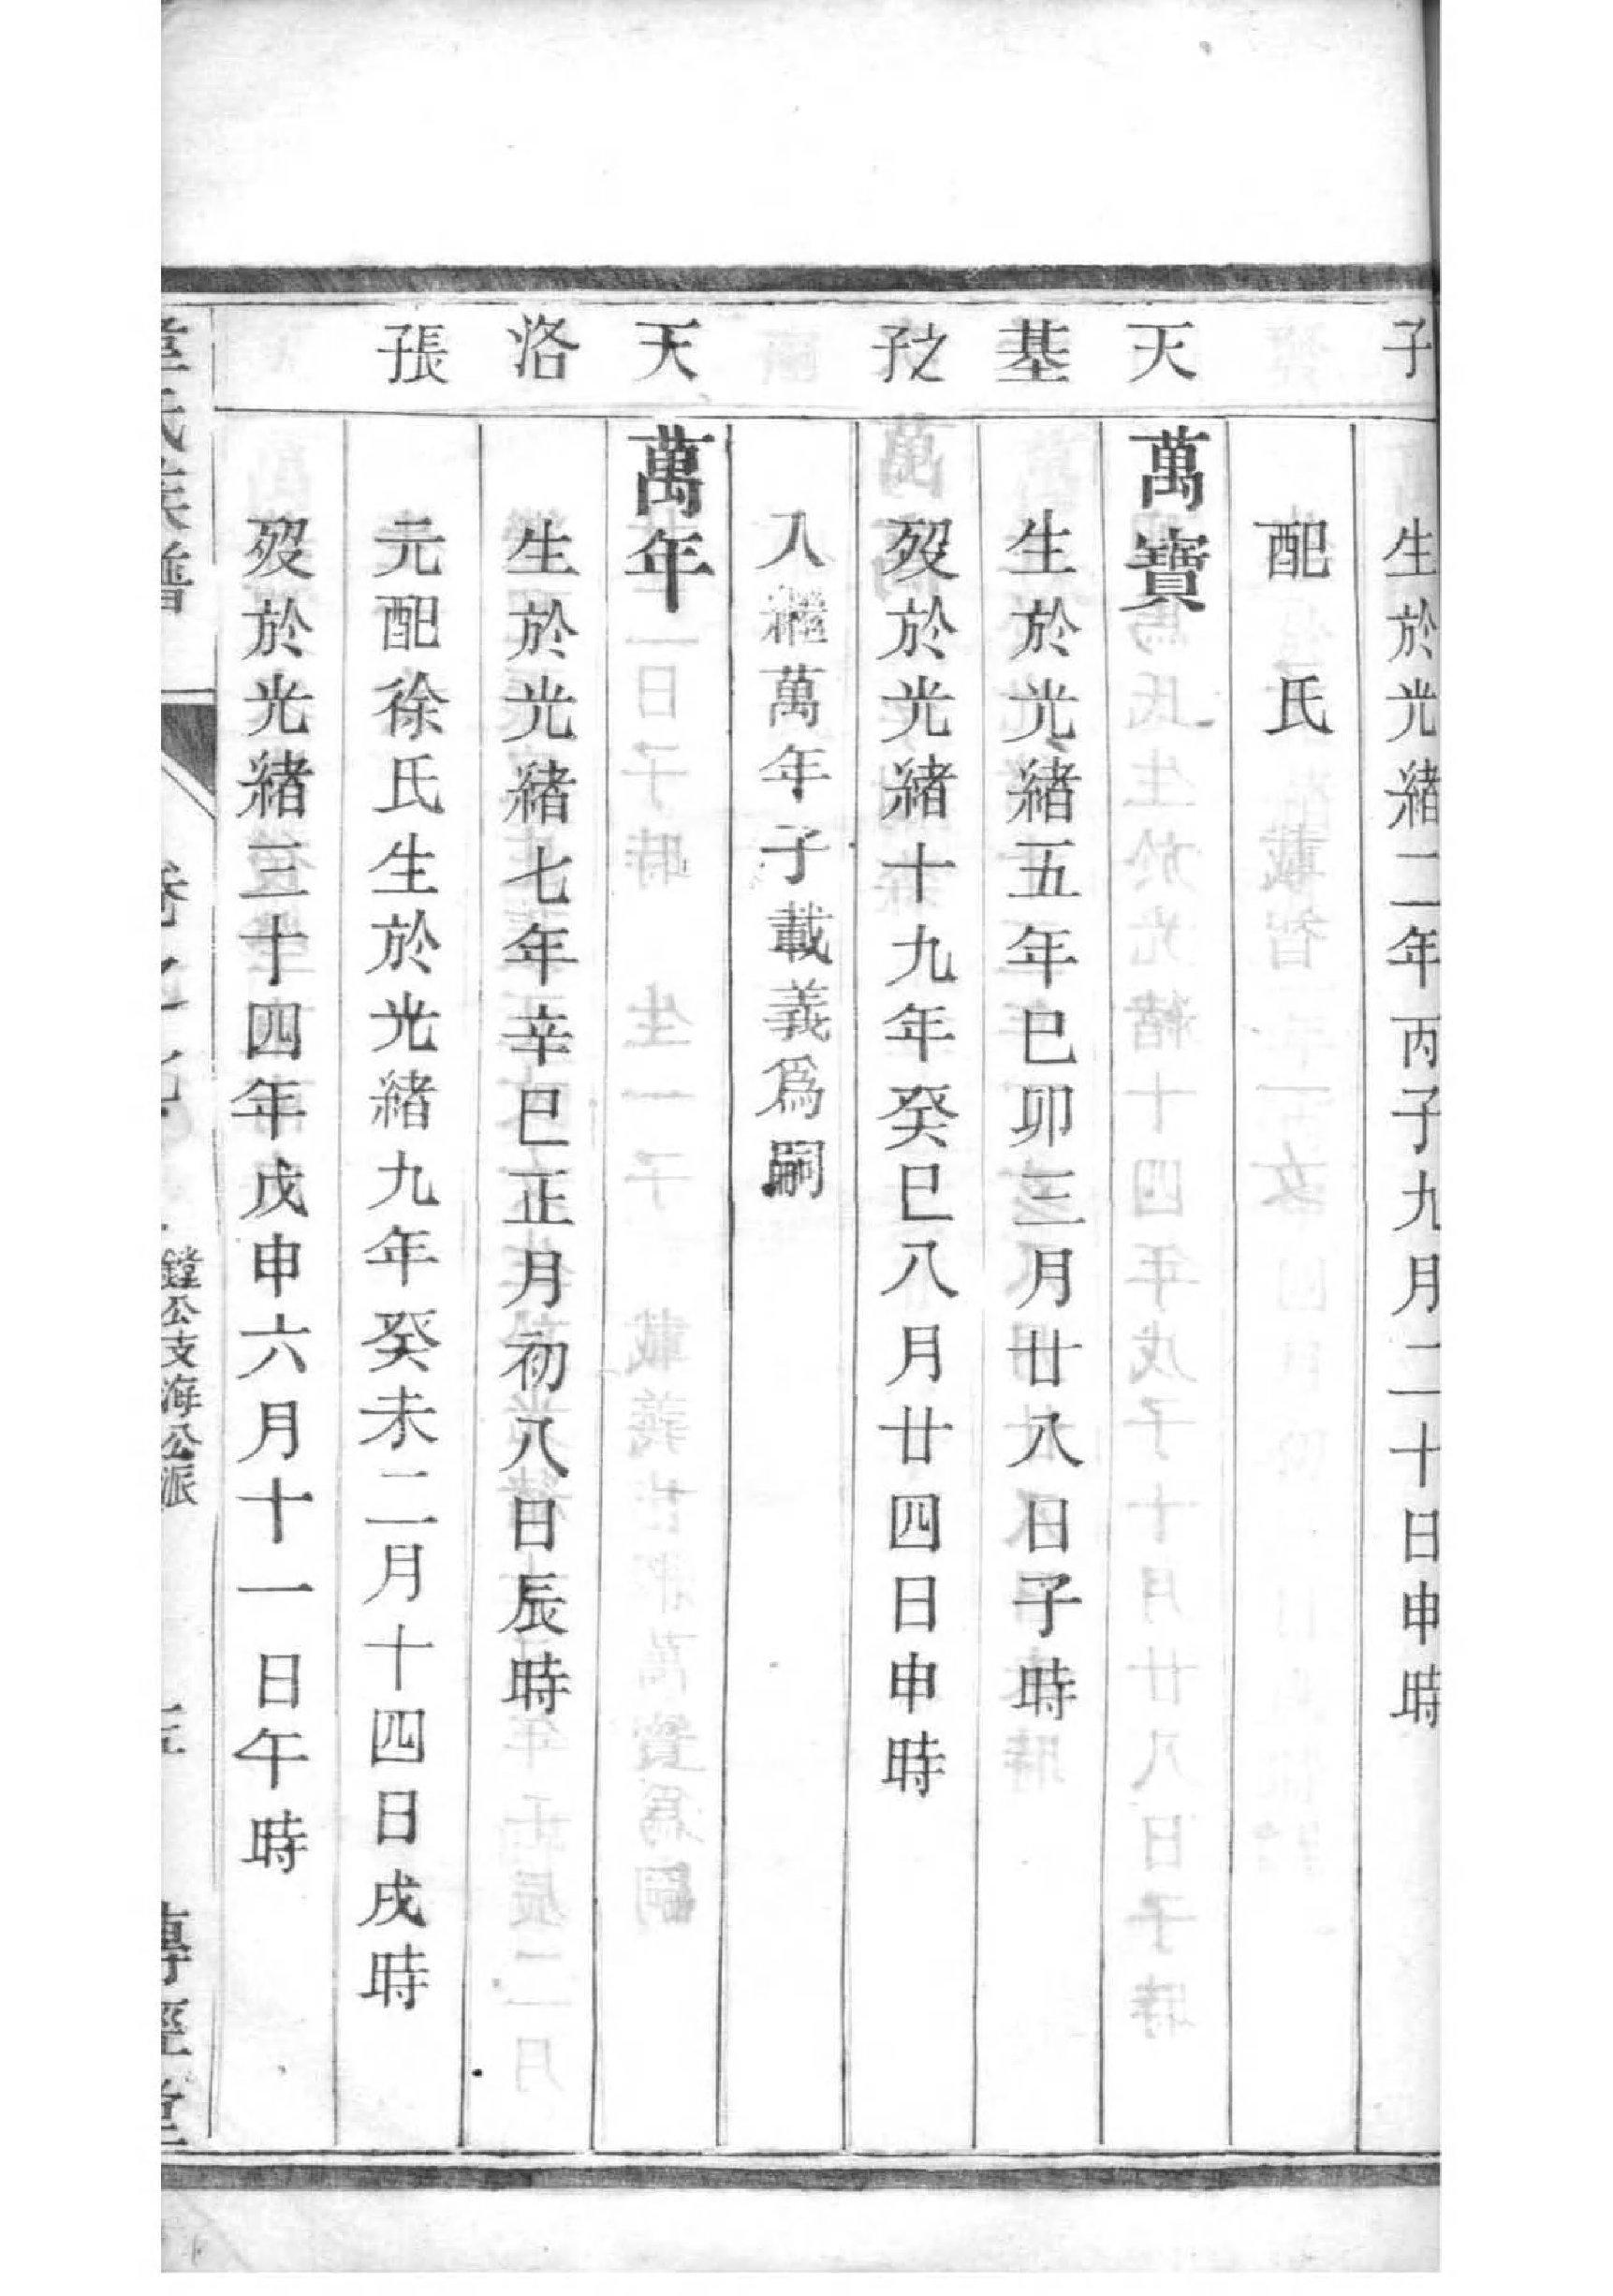 子
生於光緒二年丙子九月二十日申時
配　氏
天
萬寶
基
生於光緒五年巳卯三月廿八日子時
之子
歿於光緒十九年癸巳八月廿四日申時
入繼萬年子載義爲嗣
天
萬年
洛
生於光緒七年辛巳正月初八日辰時
長子
元配徐氏生於光緒九年癸未二月十四日戌時
歿於光緒三十四年戊申六月十一日午時
氏族譜
卷之
鏜公支海公派
五
傳經堂